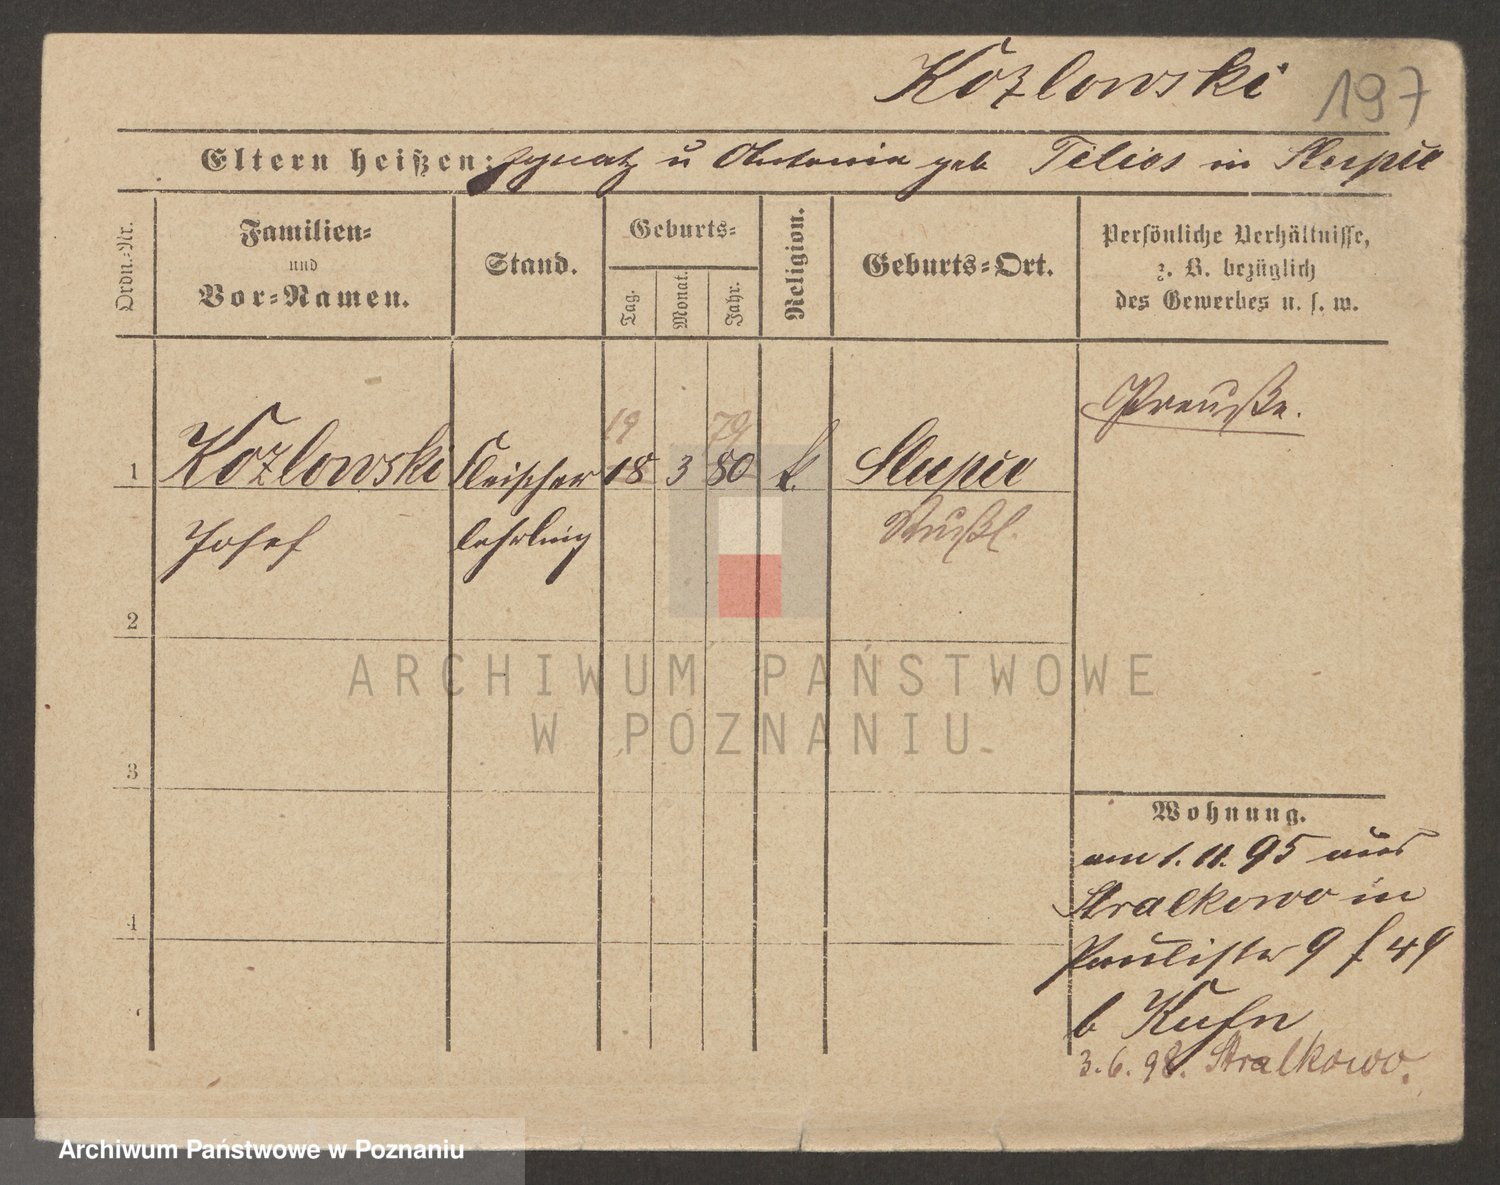 Kozlowski 197
Eltern heißen: Ignatz u Antonia geb Telios in Slupie
Ordn.-Nr.
Familien-
und
Vor-Namen.
Stand.
Geburts-
Tag.
Monat.
Jahr.
Religion.
Geburts-Ort.
Persönliche Verhältnisse,
z. B. bezüglich
des Gewerbes u. s. w.
Preuße.
19 79
1 Kozlowski Fleischer 18 3 80 k. Slupie
Josef lehrling
2
3
4
ARCHIWUM PAŃSTWOWE
W POZNANIU
Wohnung.
am 1. 11. 95 aus
Stralkowo in
Paulistr 9
b Kuhn
3. 6. 98. Stralkowo.
Archiwum Państwowe w Poznaniu